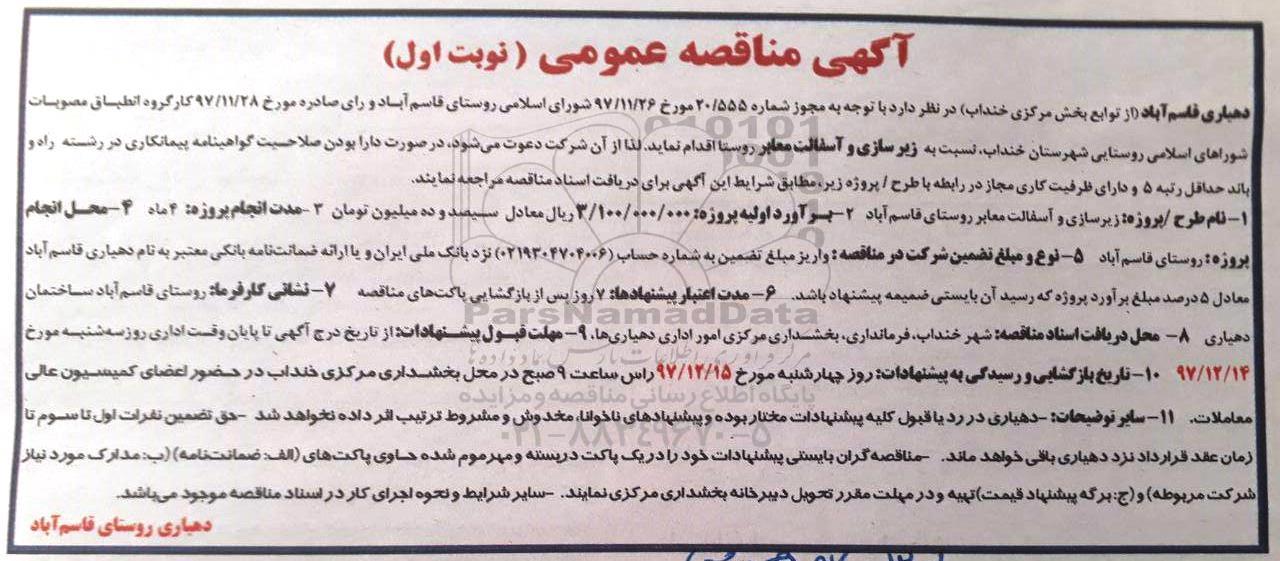 آگهی مناقصه عمومی ( نوبت اول)
دهیاری قاسم آباد (از توابع بخش مرکزی خنداب) در نظر دارد با توجه به مجوز شماره ۲۰/۵۵۵ مورخ ۹۷/۱۱/۲۶ شورای اسلامی روستای قاسم آباد و رای صادره مورخ ۹۷/۱۱/۲۸ کارگروه انطباق مصوبات
شوراهای اسلامی روستایی شهرستان خنداب، نسبت به زیر سازی و آسفالت معابر روستا اقدام نماید. لذا از آن شرکت دعوت می‌شود، در صورت دارا بودن صلاحسیت گواهینامه پیمانکاری در رشته راه و
باند حداقل رتبه ۵ و دارای ظرفیت کاری مجاز در رابطه با طرح / پروژه زیر، مطابق شرایط این آگهی برای دریافت اسناد مناقصه مراجعه نمایند.
۱- نام طرح /پروژه: زیرسازی و آسفالت معابر روستای قاسم آباد ۲- برآورد اولیه پروژه: ۳/۱۰۰/۰۰۰/۰۰۰ ریال معادل سیصد و ده میلیون تومان ۳ -مدت انجام پروژه: ۴ ماه ۴- محل انجام
پروژه: روستای قاسم آباد ۵- نوع و مبلغ تضمین شرکت در مناقصه: واریز مبلغ تضمین به شماره حساب (۰۲۱۹۳۰۴۷۰۴۰۰۶) نزد بانک ملی ایران و یا ارائه ضمانت‌نامه بانکی معتبر به نام دهیاری قاسم آباد
معادل ۵ درصد مبلغ برآورد پروژه که رسید آن بایستی ضمیمه پیشنهاد باشد. ۶- مدت اعتبار پیشنهادها: ۷ روز پس از بازگشایی پاکت‌های مناقصه ۷- نشانی کارفرما: روستای قاسم آباد ساختمان
دهیاری ۸- محل دریافت اسناد مناقصه: شهر خنداب، فرمانداری، بخشداری مرکزی امور اداری دهیاری‌ها. ۹- مهلت قبول پیشنهادات: از تاریخ درج آگهی تا پایان وقت اداری روز سه‌شنبه مورخ
۹۷/۱۲/۱۴ ۱۰- تاریخ بازگشایی و رسیدگی به پیشنهادات: روز چهارشنبه مورخ ۹۷/۱۲/۱۵ راس ساعت ۹ صبح در محل بخشداری مرکزی خنداب در حضور اعضای کمیسیون عالی
معاملات. ۱۱- سایر توضیحات: -دهیاری در رد یا قبول کلیه پیشنهادات مختار بوده و پیشنهادهای ناخوانا، مخدوش و مشروط ترتیب اثر داده نخواهد شد -حق تضمین نفرات اول تا سوم تا
زمان عقد قرارداد نزد دهیاری باقی خواهد ماند. -مناقصه گران بایستی پیشنهادات خود را در یک پاکت دربسته و مهرموم شده حاوی پاکت‌های (الف: ضمانت‌نامه) (ب: مدارک مورد نیاز
شرکت مربوطه) و (ج: برگه پیشنهاد قیمت) تهیه و در مهلت مقرر تحویل دبیرخانه بخشداری مرکزی نمایند. -سایر شرایط و نحوه اجرای کار در اسناد مناقصه موجود می‌باشد.
دهیاری روستای قاسم آباد
ParsNamadData
پایگاه اطلاع رسانی مناقصه و مزایده
۰۲۱-۸۸۳۴۹۶۷۰-۵